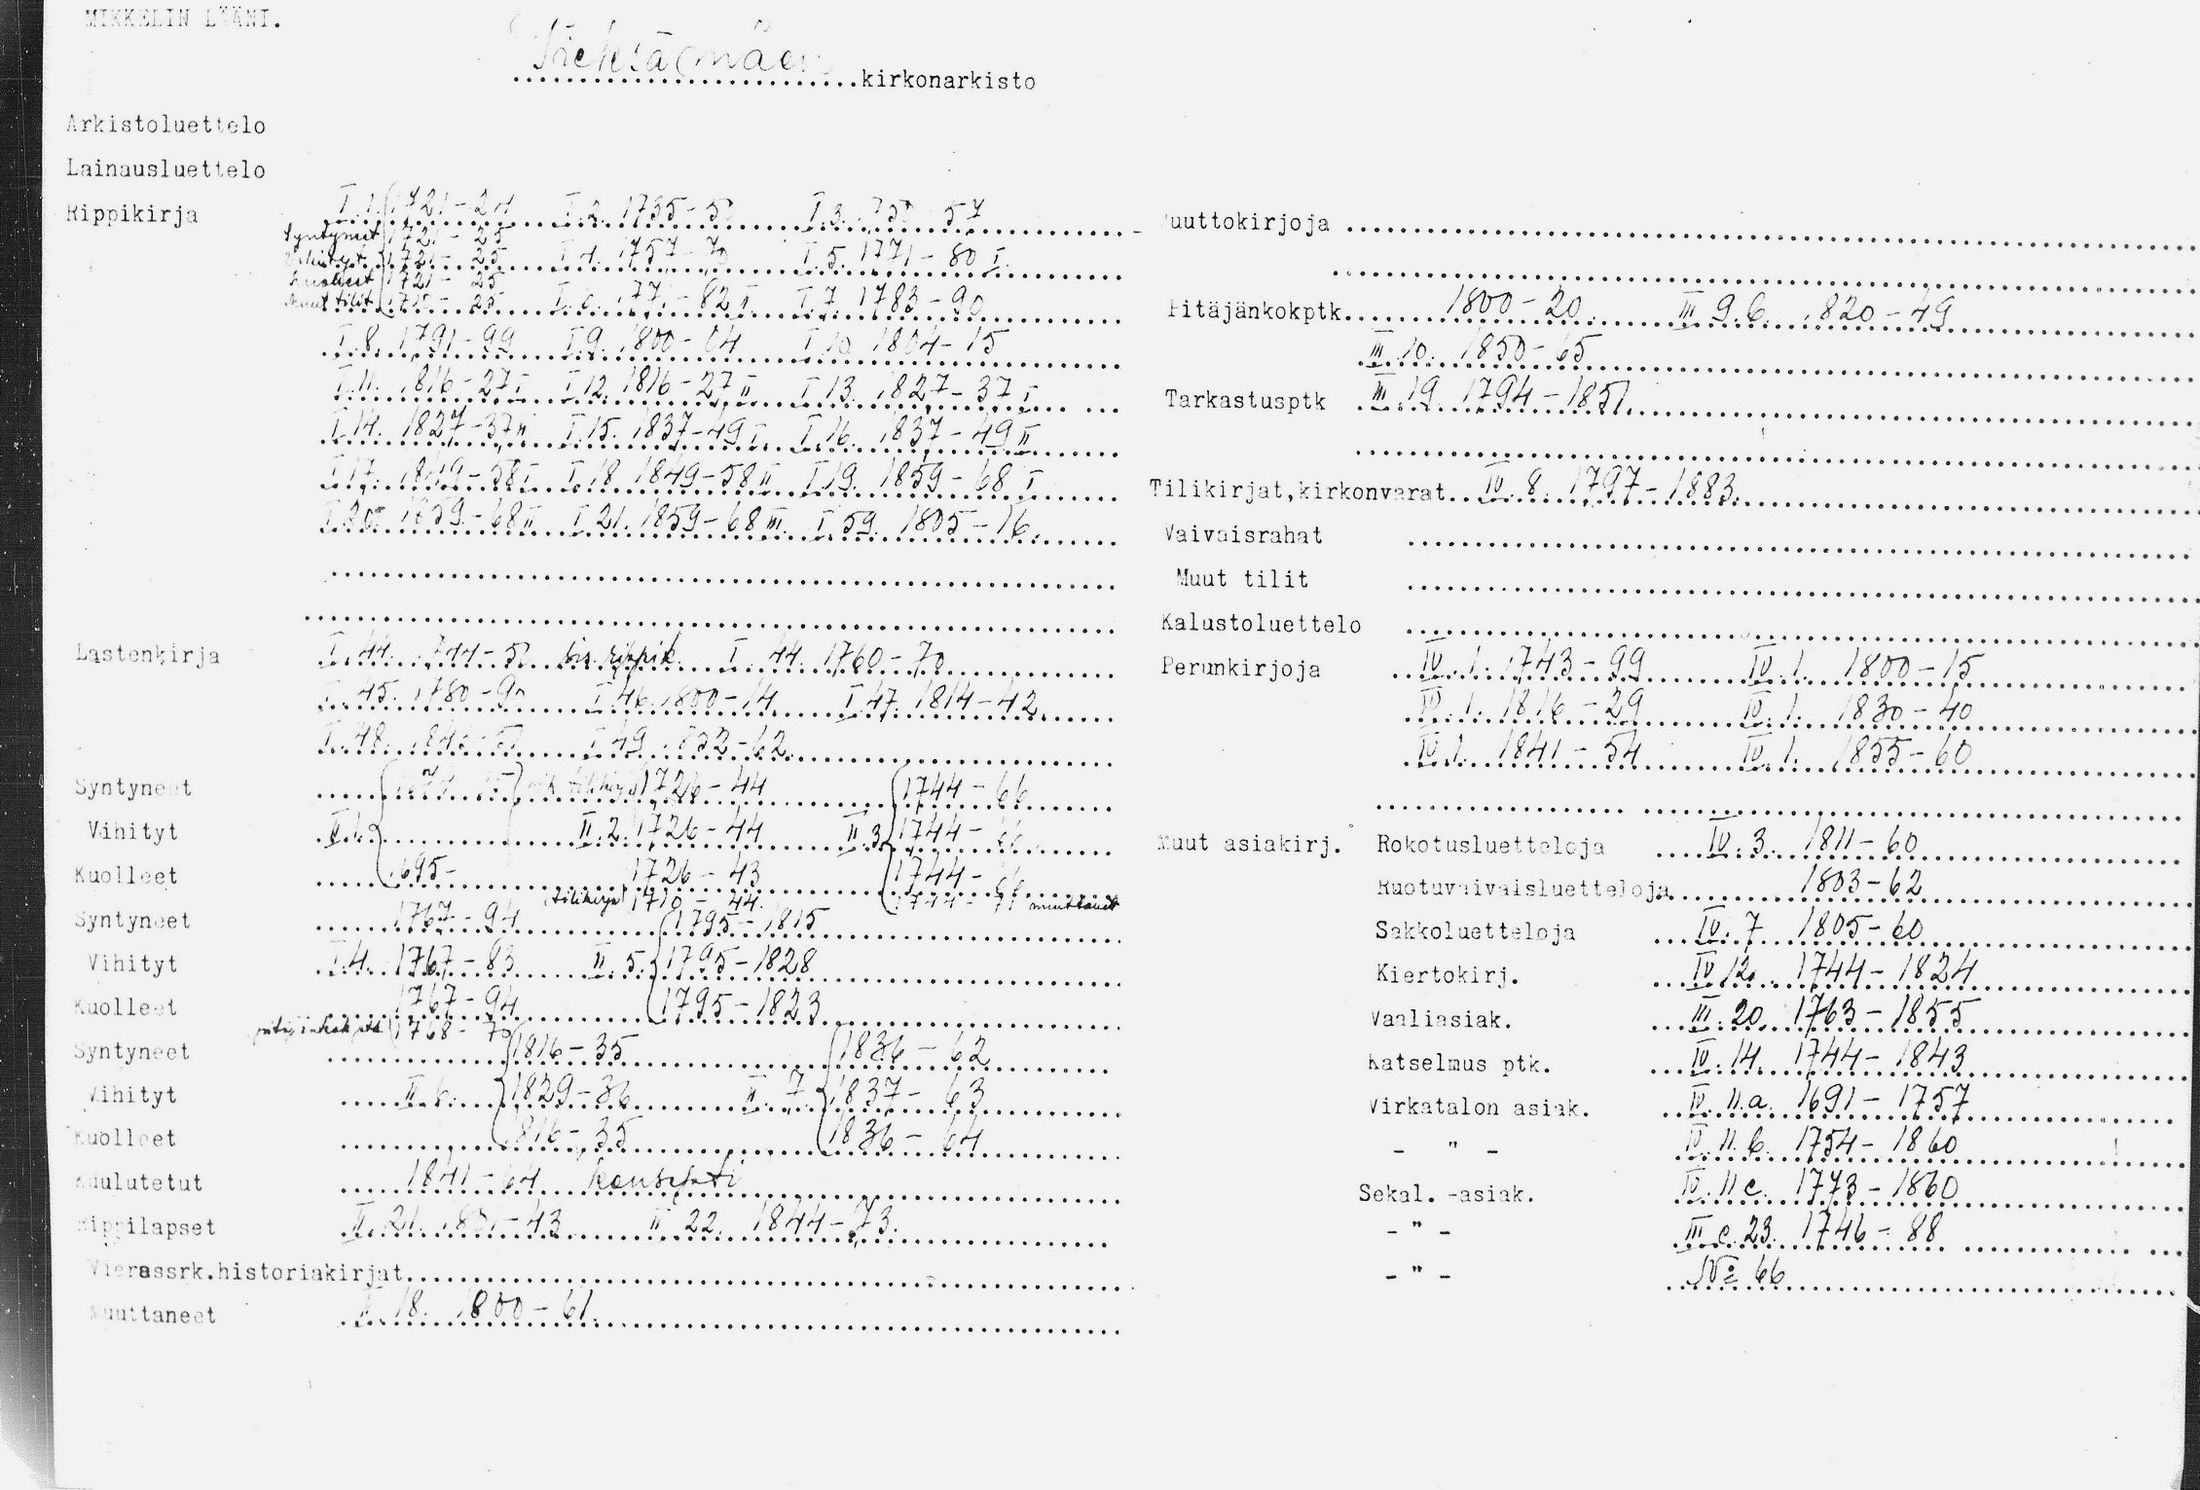 MIKKELIN LÄÄNI.
Pieksämäen kirkonarkisto
Arkistoluettelo
Lainausluettelo
Rippikirja I.1. 1721-24 I.2. 1735-5 I.3. 175 57
Syntyneet 1721-25
Vihityt 1721-25 I.4. 1757-70 I.5. 1771-80 I.
Kuolleet 1721-25
Muut tilit 25 I.6. 177 -82 II I.7. 1783-90
I.8. 1791-99 I.9. 1800-04 I.10. 1804-15
I.11. 1816-27 I I.12. 1816-27 II I.13. 1827-37 I
I.14. 1827-37 II I.15. 1837-49 I. I.16. 1837-49 II
I.17. 1849-58 I I.18. 1849-58 II I.19. 1859-68 I
I.20. 1859-68 II I.21. 1859-68 III. I.59. 1805-16.
Lastenkirja I.44. 1744-5 rippik. I.44. 1760-70
I.45. 1780-90 I.46. 1800-14 I.47. 1814-42
I.48. I.49. 1852-62.
Syntyneet 1726-44 1744-66
Vihityt II.1. II.2. 1726-44 II.3. 1744-66
Kuolleet 1695- 1726-43 1744-66
tilikirja 1710-44. muuttaneet
Syntyneet 1767-94 1795-1815
Vihityt I.4. 1767-83 II.5. 1795-1828
Kuolleet 1767-94 1795-1823
pitäjänkok ptk 1768-70
Syntyneet 1816-35 1836-62
Vihityt II.6. 1829-36 II.7. 1837-63
Kuolleet 1816-35 1836-64
Kuulutetut 1841-64 konsepti
Rippilapset II.21. -43 II 22. 1844-73.
Vierassrk.historiakirjat
Muuttaneet II.18. 1800-61.
Muuttokirjoja
Pitäjänkokptk. 1800-20. III 9.b. 1820-49
III.10. 1850-65
Tarkastusptk III.19. 1794-1851.
Tilikirjat,kirkonvarat IV.8. 1797-1883.
Vaivaisrahat
Muut tilit
Kalustoluettelo
Perunkirjoja IV.1. 1743-99 IV.1. 1800-15
IV.1. 1816-29 IV.1. 1830-40
IV.1. 1841-54 IV.1. 1855-60
Muut asiakirj. Rokotusluetteloja IV.3. 1811-60
Ruotuvaivaisluetteloja 1803-62
Sakkoluetteloja IV.7 1805-60
Kiertokirj. IV 12. 1744-1824
Vaaliasiak. III.20. 1763-1855
Katselmus ptk. IV.14. 1744-1843
Virkatalon asiak. IV.11.a. 1691-1757
- " - IV.11.b. 1754-1860
Sekal. -asiak. IV.11 c. 1773-1860
- " - III c.23. 1746-88
- " - No 66